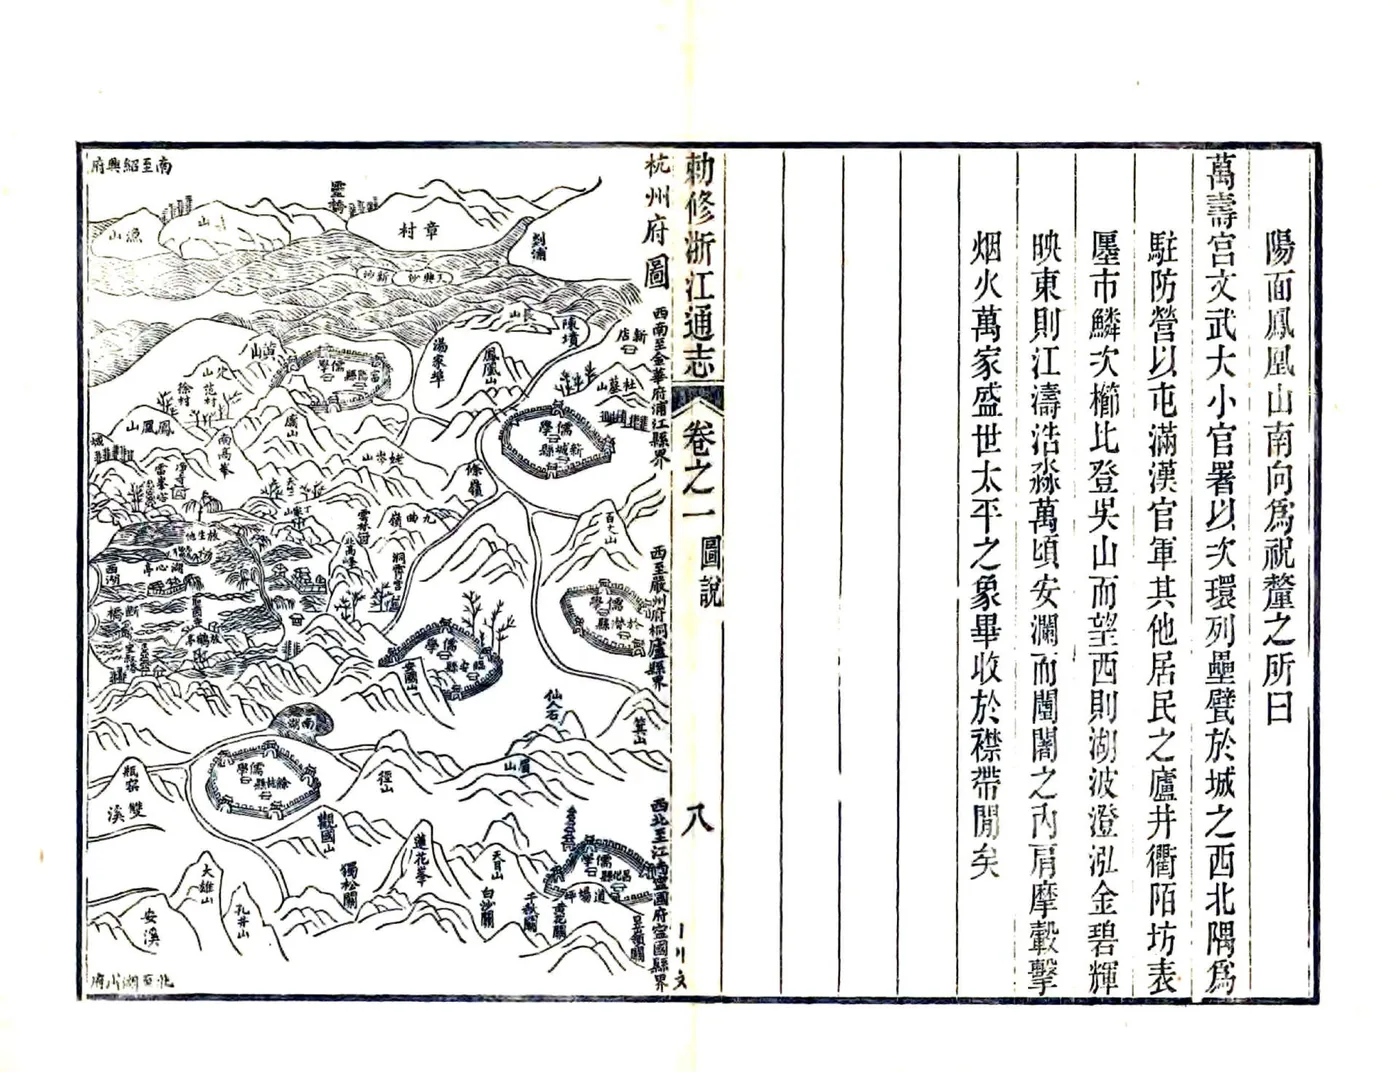 陽面鳳凰山南向爲祝釐之所曰
萬壽宮文武大小官署以次環列壘甓於城之西北隅爲
駐防營以屯滿漢官軍其他居民之廬井衢陌坊表
㕓市鱗次櫛比登吳山而望西則湖波澄泓金碧輝
映東則江濤浩淼萬頃安瀾而闤闠之內肩摩轂擊
烟火萬家盛世太平之象畢收於襟帶閒矣
勅修浙江通志
卷之一
圖說
八
杭州府圖
西南至金華府浦江縣界
西至嚴州府桐廬縣界
西北至江南寧國府寧國縣界
南至紹興府
靈橋
章村
山
漁山
劉浦
新沙
大興沙
長山
陳墳
新店
湯家埠
鳳凰山
杜墓山
黃山
儒學
富陽縣
徐村
范村
鳳凰山
廟山
南高峯
儒學
新城縣
姥岺山
條嶺
九曲嶺
百丈山
雷峯
淨寺
放生池
湖心亭
西湖
斷橋
放鶴亭
北高峯
洞霄宮
儒學
於潛縣
儒學
臨安縣
安國山
南湖
仙人石
箕山
眉山
儒學
餘杭縣
徑山
瓶窑
雙溪
觀國山
獨松關
蓮花峯
天目山
白沙關
千秋關
黃花關
昱嶺關
儒學
昌化縣
道場坪
大雄山
孔井山
安溪
北至湖州府